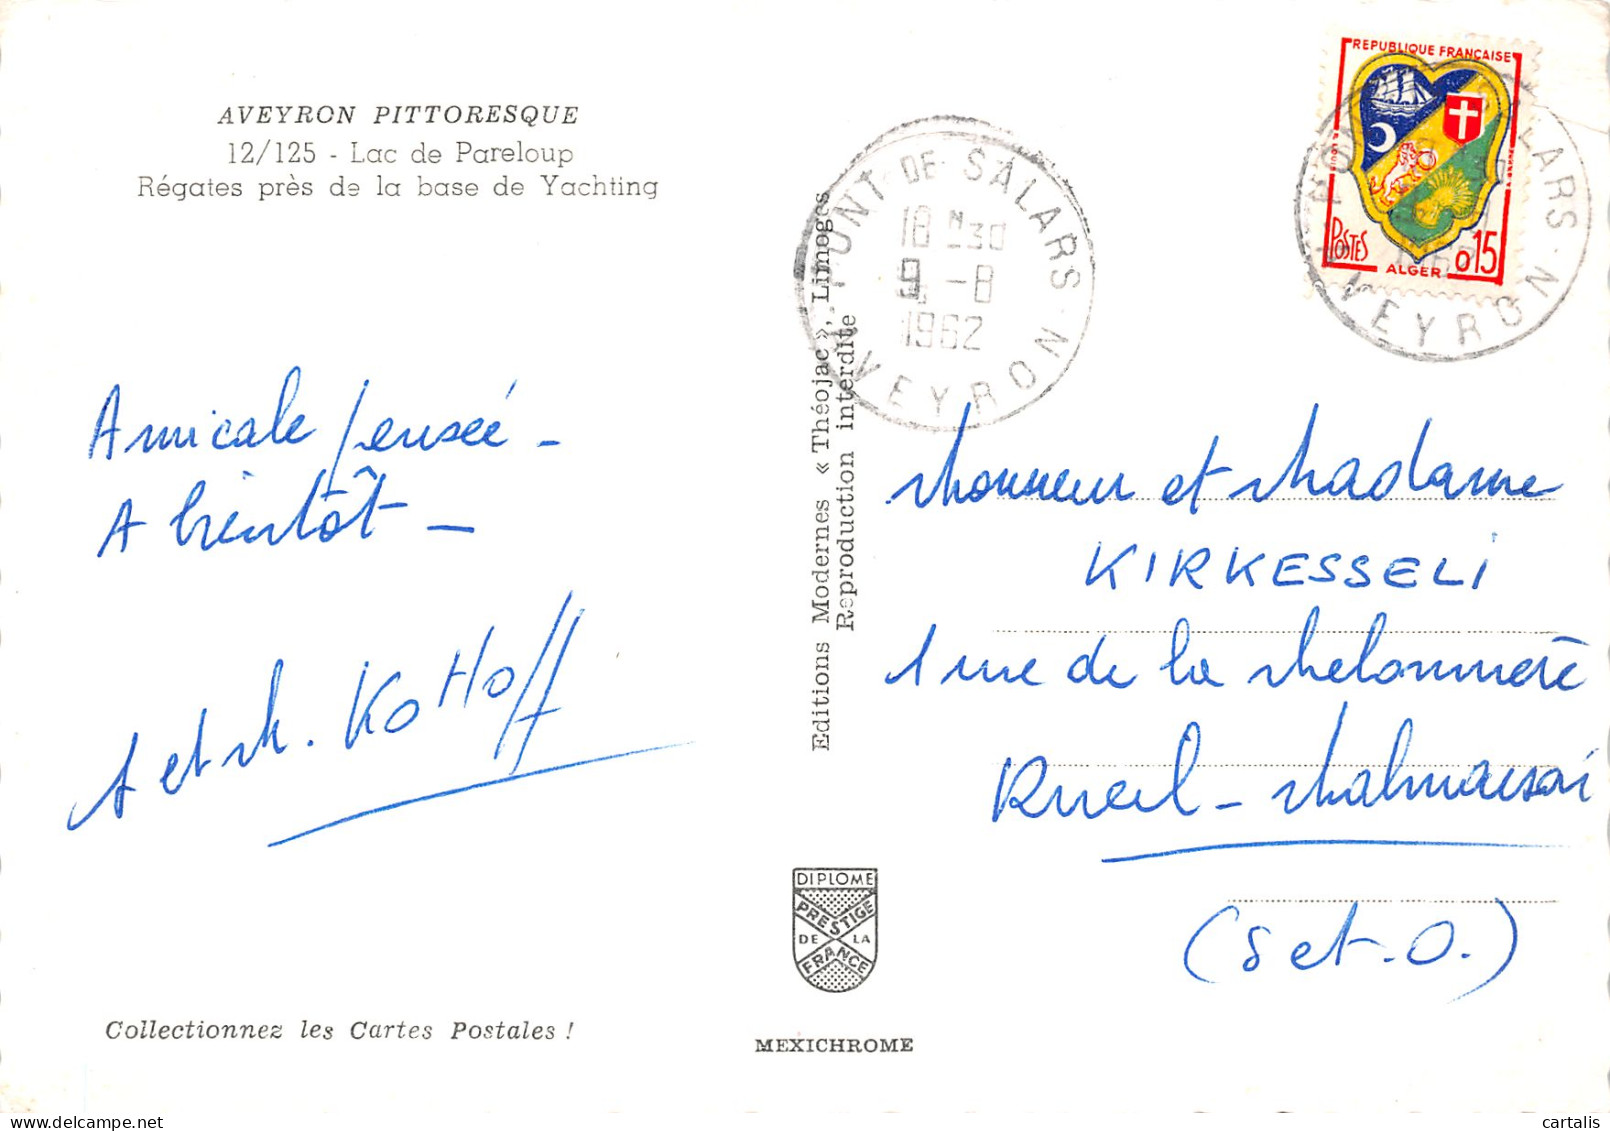 AVEYRON PITTORESQUE
12/125 - Lac de Pareloup
Régates près de la base de Yachting
Amicale pensée -
A bientôt -
A et M. KOHOFF
Collectionnez les Cartes Postales !
Editions Modernes « Théojac », Limoges
Reproduction interdite
DIPLOME
PRESTIGE
DE LA
FRANCE
MEXICHROME
PONT-DE-SALARS
18 H 30
9 -8
1962
AVEYRON
REPUBLIQUE FRANÇAISE
POSTES
ALGER
0,15
SALARS
AVEYRON
Monsieur et Madame
KIRKESSELI
1 rue de la Melonnière
Rueil - Malmaison
(S et. O.)
cartalis